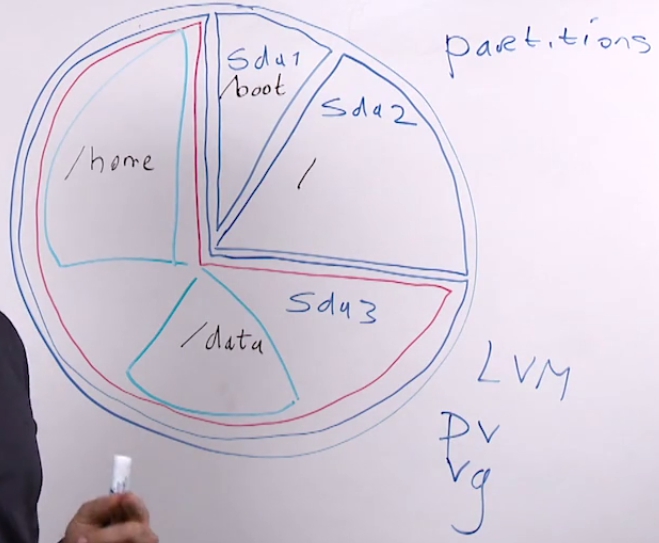 partitions
sda1
/boot
sda2
/
/home
sda3
/data
LVM
pv
vg